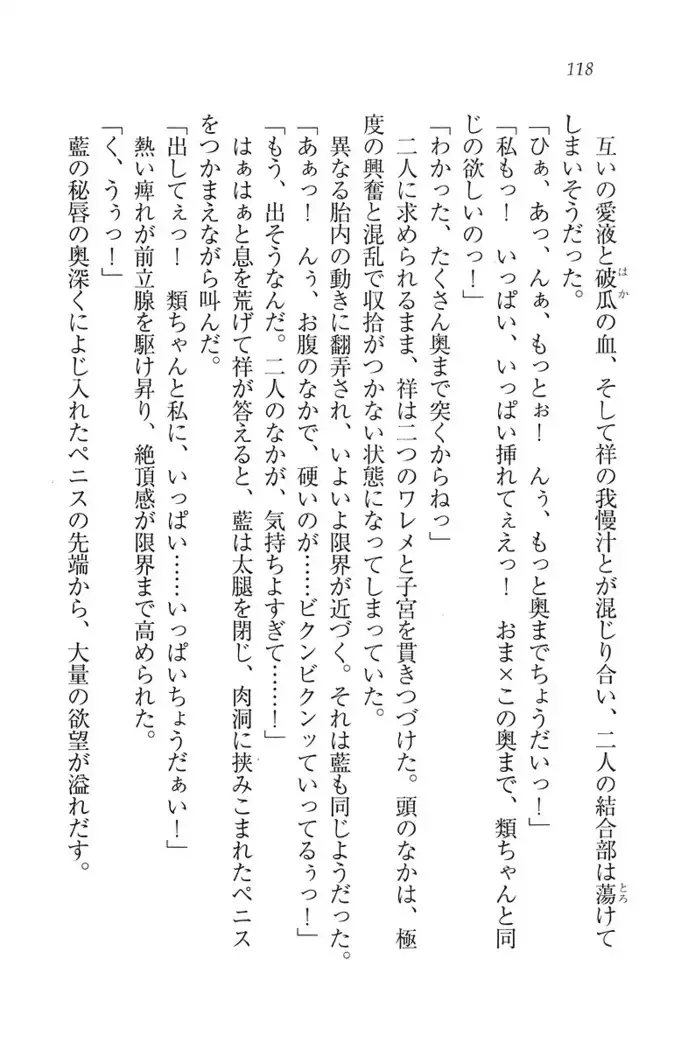 118
互いの愛液と破瓜の血、そして祥の我慢汁とが混じり合い、二人の結合部は蕩けて
しまいそうだった。
「ひぁ、あっ、んぁ、もっとぉ！　んぅ、もっと奥までちょうだいっ！」
「私もっ！　いっぱい、いっぱい挿れてぇえっ！　おま×この奥まで、類ちゃんと同
じの欲しいのっ！」
「わかった、たくさん奥まで突くからねっ」
二人に求められるまま、祥は二つのワレメと子宮を貫きつづけた。頭のなかは、極
度の興奮と混乱で収拾がつかない状態になってしまっていた。
異なる胎内の動きに翻弄され、いよいよ限界が近づく。それは藍も同じようだった。
「あぁっ！　んぅ、お腹のなかで、硬いのが……ビクンビクンッていってるぅっ！」
「もう、出そうなんだ。二人のなかが、気持ちよすぎて……！」
はぁはぁと息を荒げて祥が答えると、藍は太腿を閉じ、肉洞に挟みこまれたペニス
をつかまえながら叫んだ。
「出してぇっ！　類ちゃんと私に、いっぱい……いっぱいちょうだぁい！」
熱い痺れが前立腺を駆け昇り、絶頂感が限界まで高められた。
「く、うぅっ！」
藍の秘唇の奥深くによじ入れたペニスの先端から、大量の欲望が溢れだす。